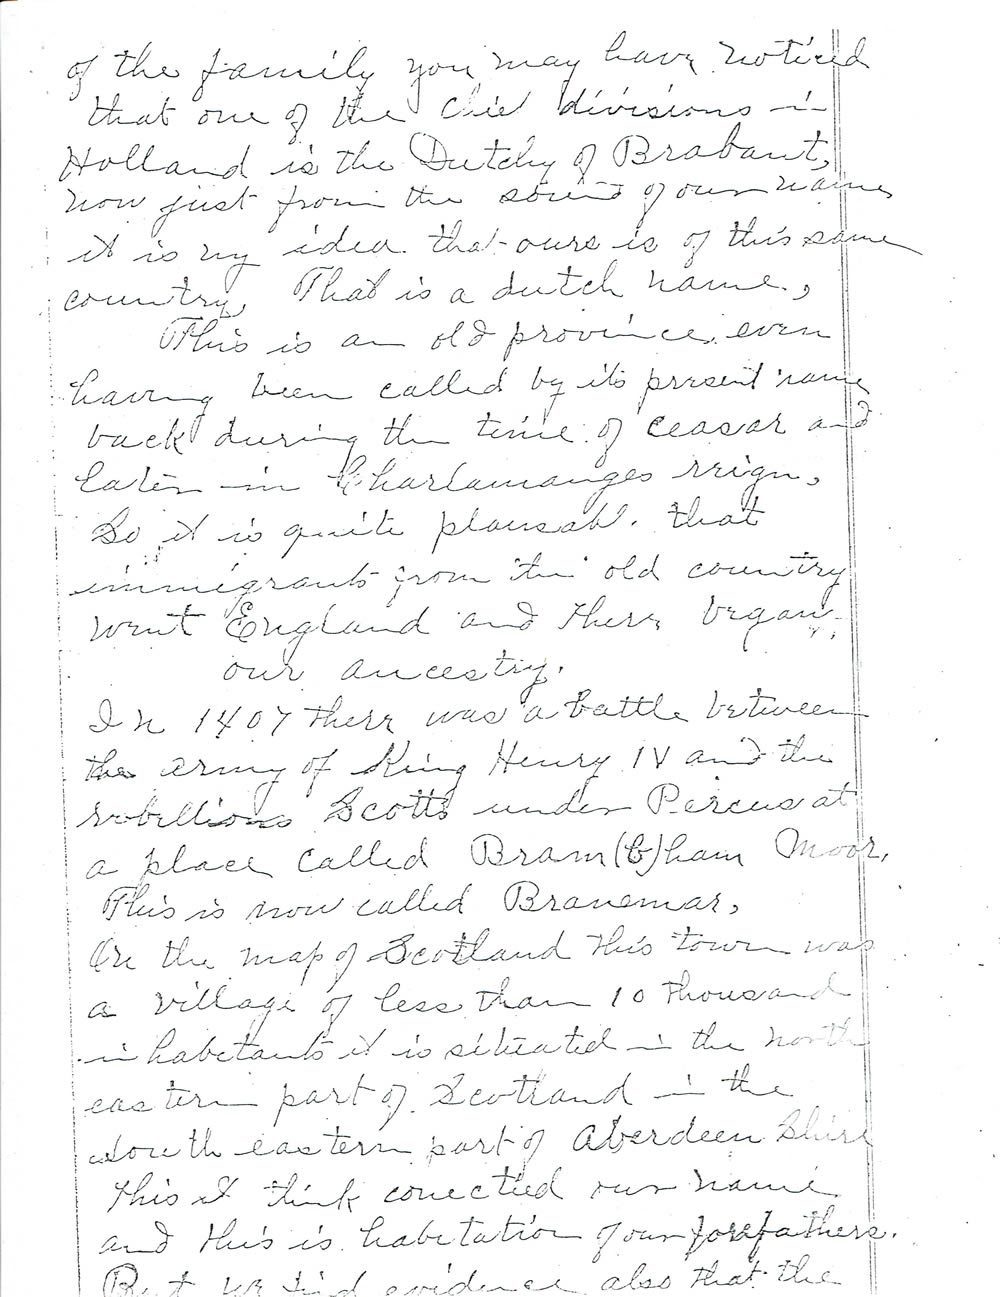 of the family you may have noticed
that one of the chief divisions in
Holland is the Dutchy of Brabant,
now just from the sound of our name
it is my idea that ours is of this same
country, That is a dutch name,
This is an old province even
having been called by its present name
back during the time of ceasar and
later in Charlamanges reign,
So it is quite plausabl. that
immigrants from the old country
went England and there began
our ancestry.
In 1407 there was a battle between
the army of King Henry IV and the
rebellious Scotts under Percus at
a place called Bram(b)ham Moor,
This is now called Branemar,
On the map of Scotland this town was
a village of less than 10 thousand
inhabetants it is situated in the north
eastern part of Scotland in the
south eastern part of Aberdeen Shire
This I think conected our name
and this is habitation of our forefathers.
But we find evidence also that the